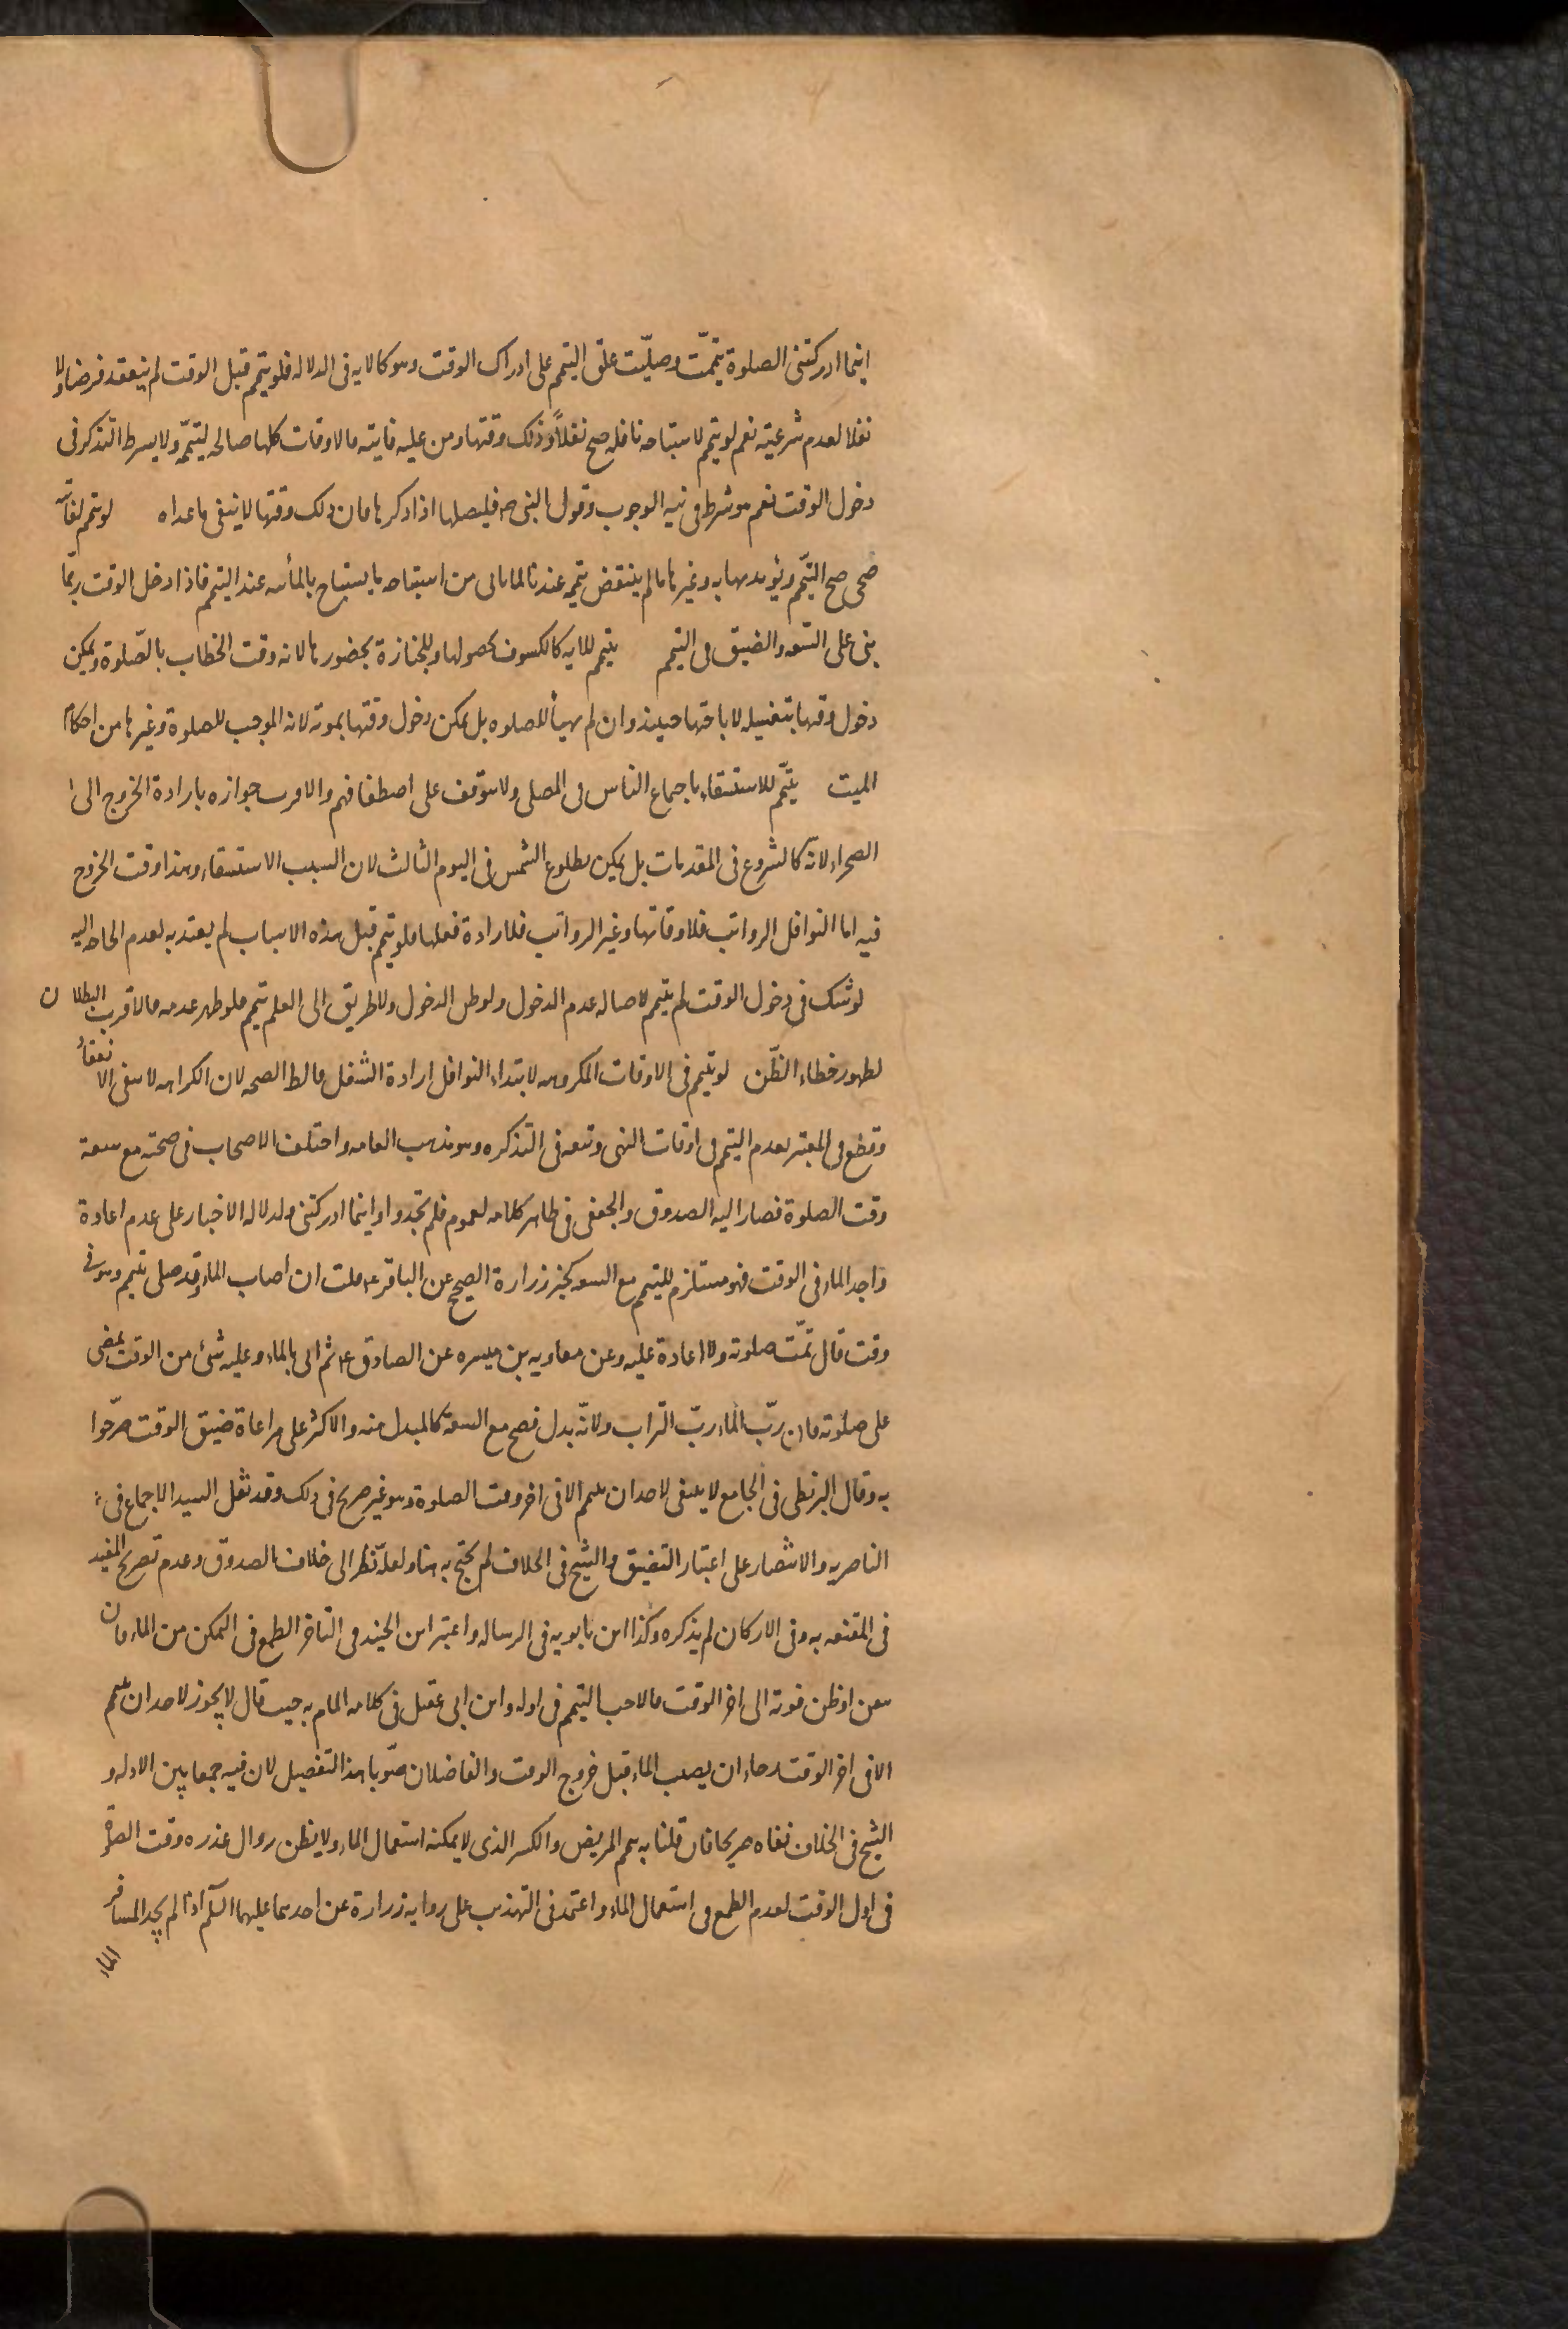 اينما ادركتنى الصلوة تيمّمت وصليّت علق التيمم على ادراك الوقت وهو كالايه فى الدلاله فلو تيمم قبل الوقت لم ينعقد فرضا ولا
نفلا لعدم شرعيته نعم لو تيمم لاستباحه نافله صح نفلاً وذلك وقتها ومن عليه فايته فالاوقات كلها صالحه لتيممه ولا يشرط التذكر فى
دخول الوقت نعم هو شرط فى نيه الوجوب وقول النبى ص فليصلها اذا ذكرها فان ذلك وقتها لا ينفى ما عداه لو تيمم لفائته
ضحى صح التيمّم ويؤدى بها به وغيرها ما لم ينتقض تيممه عندنا لما ياتى من استباحه ما يستباح بالمائيه عند التيمم فاذا دخل الوقت ربّما
بنى على السّعه والضيق فى التيمم يتيمم للايه كالكسوف بحصولها وللجنازة بحضورها لانه وقت الخطاب بالصّلوة ويمكن
دخول وقتها بتغسيله لاباحتها حينئذ وان لم يهيأ للصلوه بل يمكن دخول وقتها بموته لانه الموجب للصلوة وغيرها من احكام
الميت يتيمّم للاستسقاء باجماع الناس فى المصلى ولا يتوقف على اصطفافهم والاقرب جوازه بارادة الخروج الى
الصحراء لانّه كالشروع فى المقدمات بل يمكن بطلوع الشمس فى اليوم الثالث لان السبب الاستسقاء وهذا وقت الخروج
فيه اما النوافل الرواتب فلاوقاتها وغير الرواتب فلارادة فعلها فلو تيمم قبل هذه الاسباب لم يعتد به لعدم الحاجه اليه
لو شك فى دخول الوقت لم يتيمم لاصاله عدم الدخول ولو ظن الدخول ولا طريق الى العلم تيمم فلو ظهر عدمه فالاقرب البطلان
لظهور خطاء الظّن لو تيمم فى الاوقات المكروهه لابتداء النوافل ارادة النفل فالظ الصحه لان الكراهه لا تنفى الانعقاد
وقطع فى المعتبر بعدم التيمم فى اوقات النهى وتبعه فى التذكره وهو مذهب العامه واختلف الاصحاب فى صحته مع سعة
وقت الصلوة فصار اليه الصدوق والجعفى فى ظاهر كلامه لعموم فلم تجدوا واينما ادركتنى ولدلاله الاخبار على عدم اعادة
واجد الماء فى الوقت فهو مستلزم للتيمم مع السعه كخبر زرارة الصحيح عن الباقر ع قلت ان اصاب الماء وقد صلى بتيمم وهو فى
وقت قال تمّت صلوته ولا اعادة عليه وعن معاويه بن ميسره عن الصادق ع ثم اتى بالماء وعليه شئ من الوقت يمضى
على صلوته فان ربّ الماء ربّ التراب ولانّه بدل فصح مع السعة كالمبدل منه والاكثر على مراعاة ضيق الوقت صرّحوا
به وقال البزنطى فى الجامع لا ينبغى لاحد ان يتيمم الا فى اخر وقت الصلوة وهو غير صريح فى ذلك وقد نقل السيد الاجماع فى
الناصريه والانتصار على اعتبار التضيق والشيخ فى الخلاف لم يحتج به هنا ولعله نظر الى خلاف الصدوق وعدم تصريح المفيد
فى المقنعه به وفى الاركان لم يذكره وكذا ابن بابويه فى الرساله واعتبر ابن الجنيد فى التاخر الطمع فى التمكن من الماء فان
تيقن او ظن فوته الى اخر الوقت فالاحب التيمم فى اوله وابن ابى عقيل فى كلامه المام به حيث قال لا يجوز لاحد ان يتيمم
الا فى اخر الوقت رجاء ان يصيب الماء قبل خروج الوقت والفاضلان صوّبا هذا التفصيل لان فيه جمعا بين الادله و
الشيخ فى الخلاف نفاه صريحا فان قلنا به يتيمم المريض والكسير الذى لا يمكنه استعمال الماء ولا يظن زوال عذره وقت الصلوة
فى اول الوقت لعدم الطمع فى استعمال الماء واعتمد فى التهذيب على روايه زرارة عن احدهما عليهما السلم اذا لم يجد المسافر
الماء